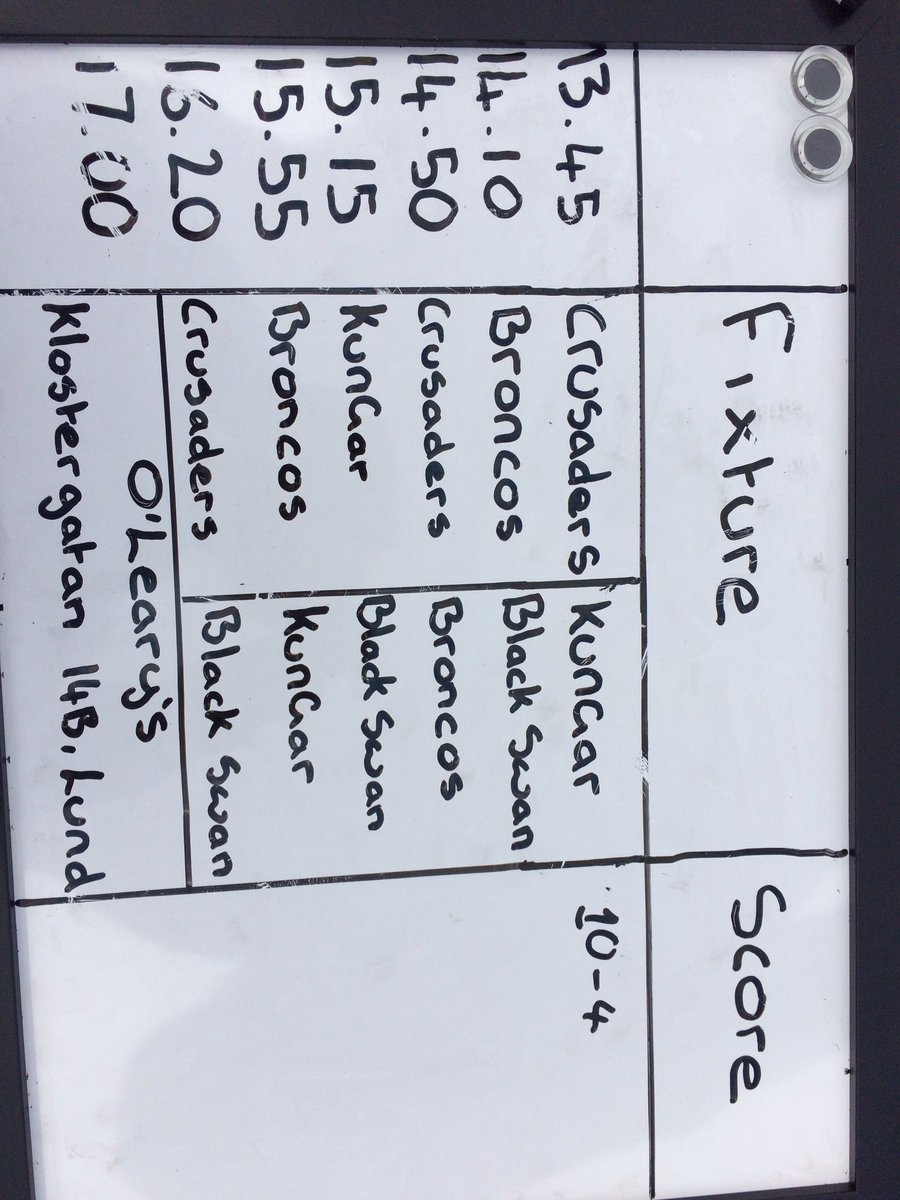 Fixture Score
13.45 Crusaders KunGar 10-4
14.10 Broncos Black Swan
14.50 Crusaders Broncos
15.15 KunGar Black Swan
15.55 Broncos KunGar
16.20 Crusaders Black Swan
O'Leary's
17.00 Klostergatan 14B, Lund